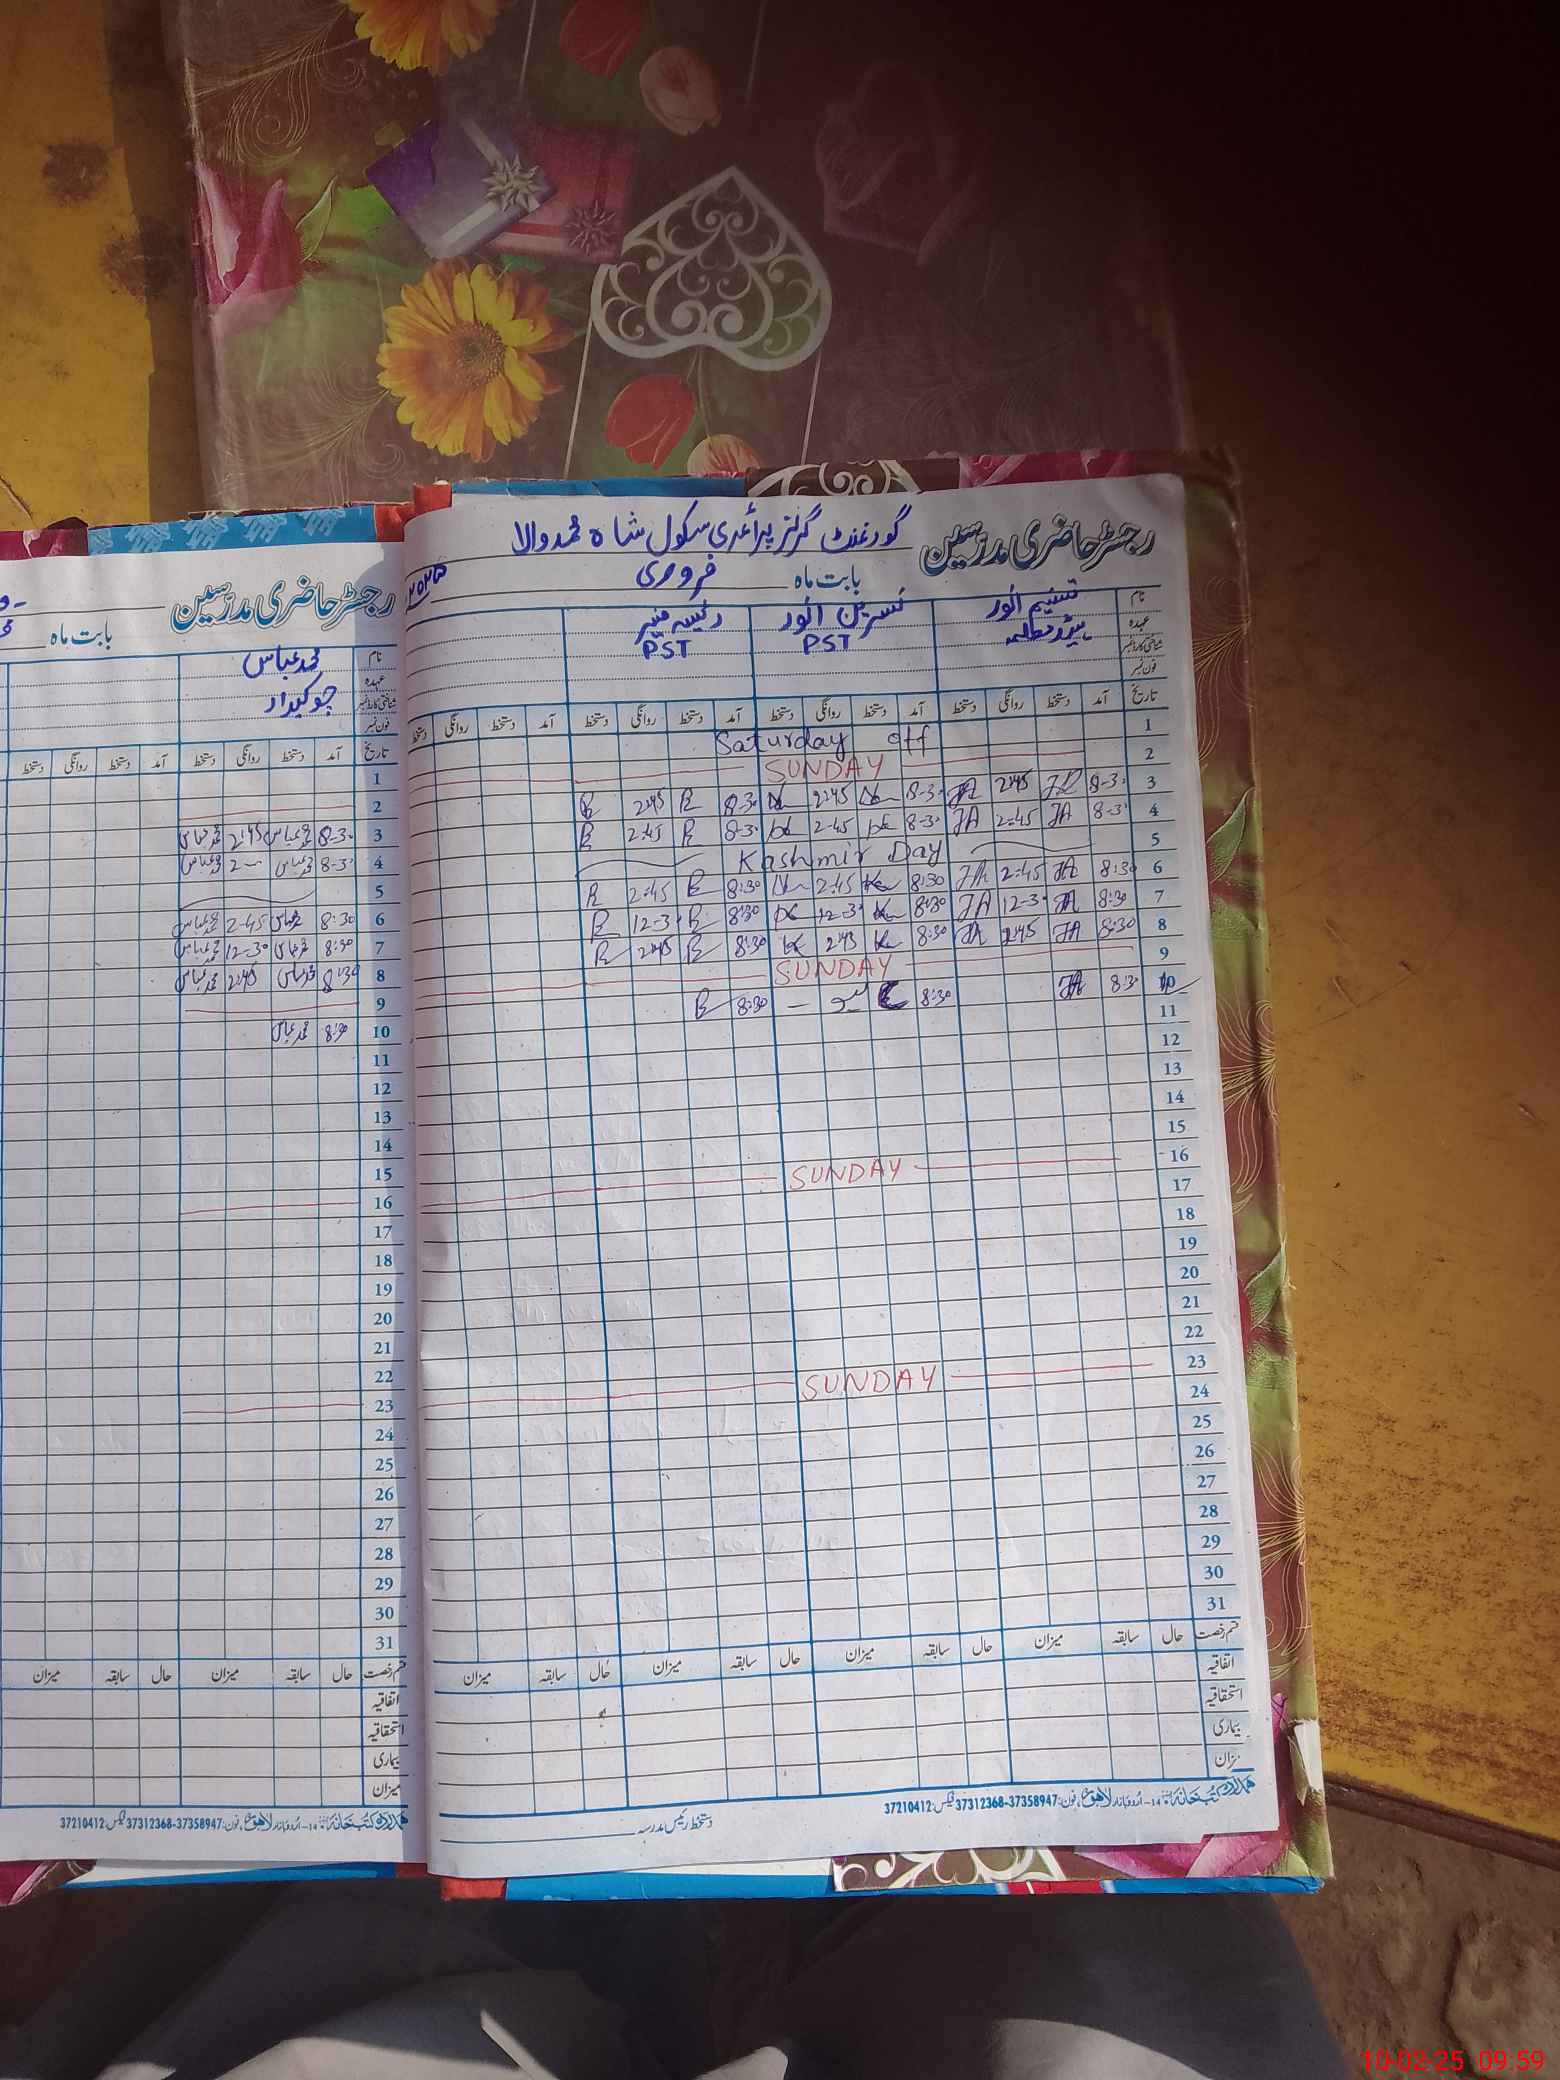 رجسٹر حاضری مدرسین گورنمنٹ گرلز پرائمری سکول شاہ محمد والا
بابت ماہ فروری ۲۰۲۵
نام تسنیم انور نسرین انور رئیسہ منیر
عہدہ ہیڈ معلمہ PST PST
شناختی کارڈ نمبر
فون نمبر
تاریخ آمد دستخط روانگی دستخط آمد دستخط روانگی دستخط آمد دستخط روانگی دستخط آمد دستخط روانگی دستخط
1 Saturday off
2 SUNDAY
3 8-3. 2:45 8-3. 2:45 8-30 2:45
4 8-3. JA 2:45 JA 8-3. 2-45 8-3. 2:45 R
5 Kashmir Day
6 8:30 JA 2:45 JA 8:30 2:45 8:30 2:45 R
7 8:30 JA 12-3. JA 8:30 12-3. 8:30 12-3. R
8 8:30 JA 2:45 JA 8:30 2:45 8:30 2:45 R
9 SUNDAY
10 8:30 JA 8:30 8:30
11
12
13
14
15
16 SUNDAY
17
18
19
20
21
22
23 SUNDAY
24
25
26
27
28
29
30
31
قسم رخصت حال سابقہ میزان حال سابقہ میزان حال سابقہ میزان
اتفاقیہ
استحقاقیہ
بیماری
میزان
ہمدرد کتب خانہ 14-اردو بازار لاہور، فون: 37358947-37312368 فیکس: 37210412
دستخط رئیس مدرسہ
رجسٹر حاضری مدرسین
بابت ماہ
نام محمد عباس
عہدہ چوکیدار
شناختی کارڈ نمبر
فون نمبر
تاریخ آمد دستخط روانگی دستخط آمد دستخط روانگی دستخط
1
2
3 8-30 محمد عباس 2:45 محمد عباس
4 8-3. محمد عباس محمد عباس
5
6 8:30 محمد عباس 2-45 محمد عباس
7 8:30 محمد عباس 12-30 محمد عباس
8 8:30 محمد عباس 2:45 محمد عباس
9
10 8:30 محمد عباس
11
12
13
14
15
16
17
18
19
20
21
22
23
24
25
26
27
28
29
30
31
قسم رخصت حال سابقہ میزان حال سابقہ میزان
اتفاقیہ
استحقاقیہ
بیماری
میزان
ہمدرد کتب خانہ 14-اردو بازار لاہور، فون: 37358947-37312368 فیکس: 37210412
10-02-25 09:59